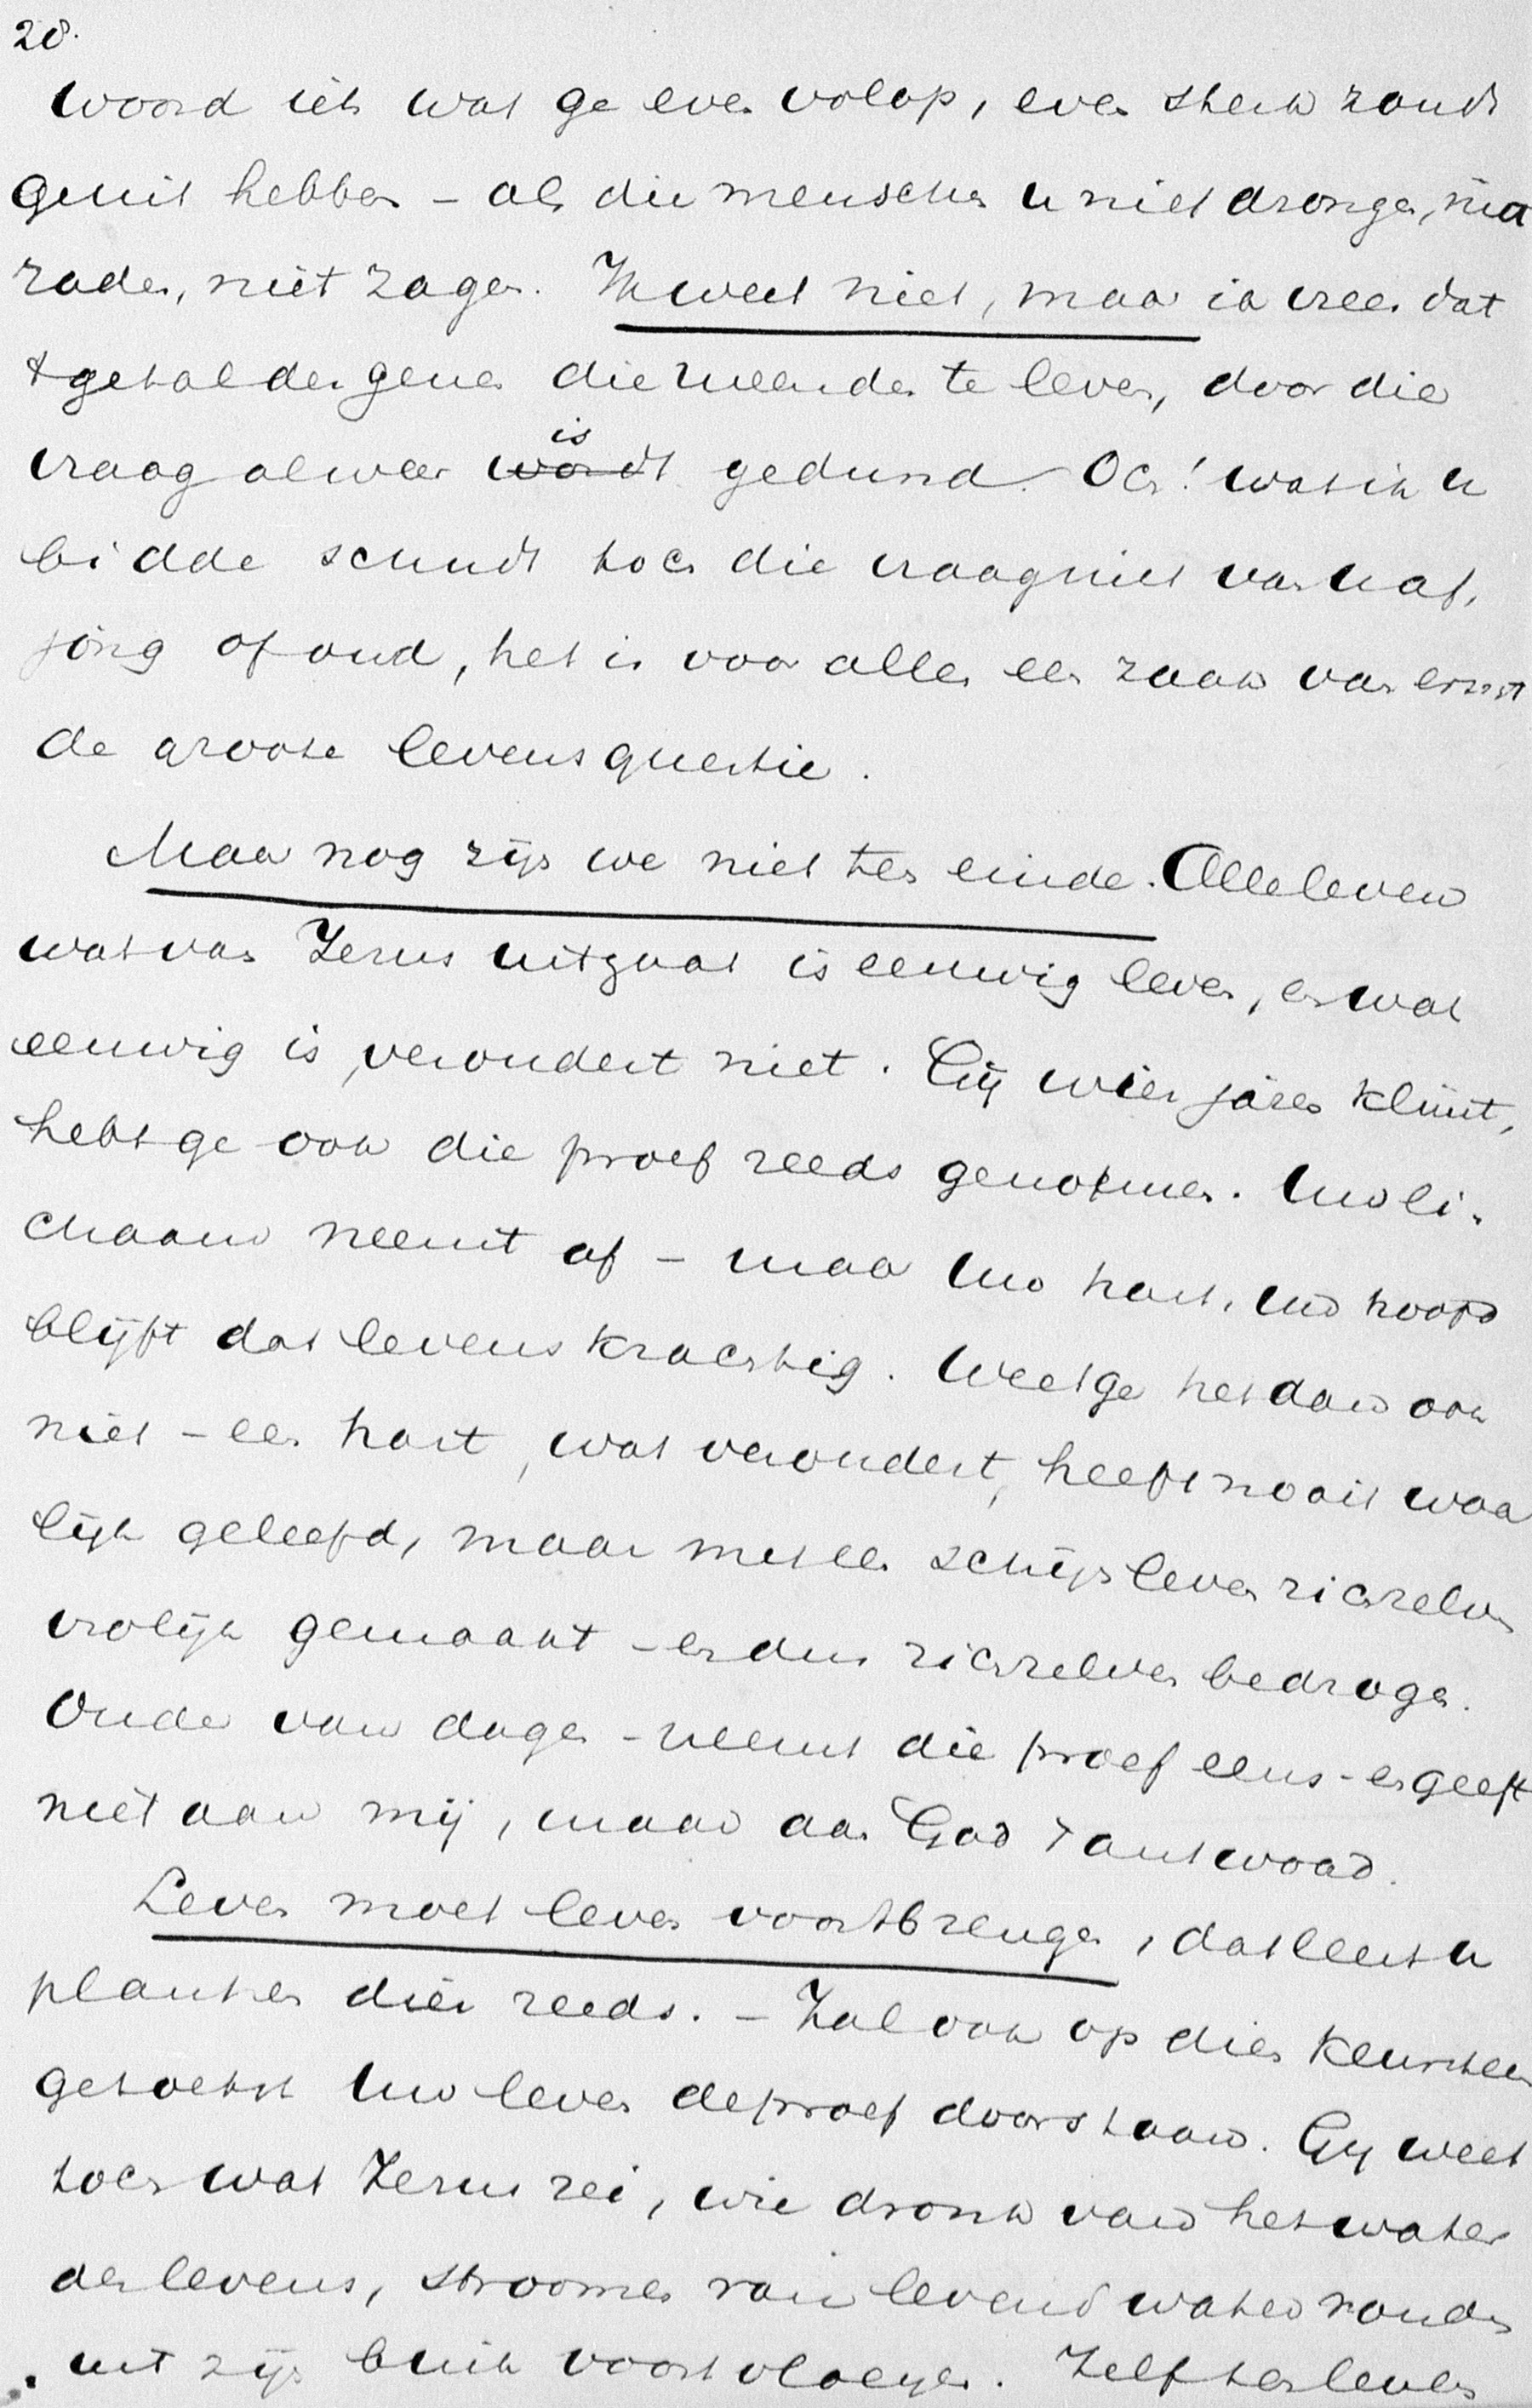 28.
woord iets wat ge even volop, even sterk zoudt
geuit hebben – als die menschen u niet drongen, niet
raden, niet zagen. Ik weet niet, maar ik vrees dat
't getal dergenen die meenden te leven, door die
vraag alweer is gedund. Och! wat ik u
bidde schudt toch die vraag niet van u af,
jong of oud, het is voor allen een zaak van ernst
de groote levensquestie.
Maar nog zijn we niet ten einde. Alle leven
wat van Jezus uitgaat is eeuwig leven, en wat
eeuwig is, veroudert niet. Gij wier jaren klimt,
hebt ge ook die proef reeds genomen. Uw li-
chaam neemt af – maar Uw hart, Uw hoofd
blijft dat levenskrachtig. Weet ge het dan ook
niet – een hart, wat veroudert, heeft nooit waar
lijk geleefd, maar met een schijnleven zichzelven
vrolijk gemaakt – en dus zichzelven bedrogen.
Ouden van dagen – neemt die proef eens – en geeft
niet aan mij, maar aan God 't antwoord.
Leven moet leven voortbrengen, dat leert u
plant en dier reeds. – Zal ook op dien keursteen
getoetst Uw leven de proef doorstaan. Gij weet
toch wat Jezus zei, wie dronk van het water
des levens, stroomen van levend water zouden
uit zijn buik voortvloeyen. Zelf ten leven